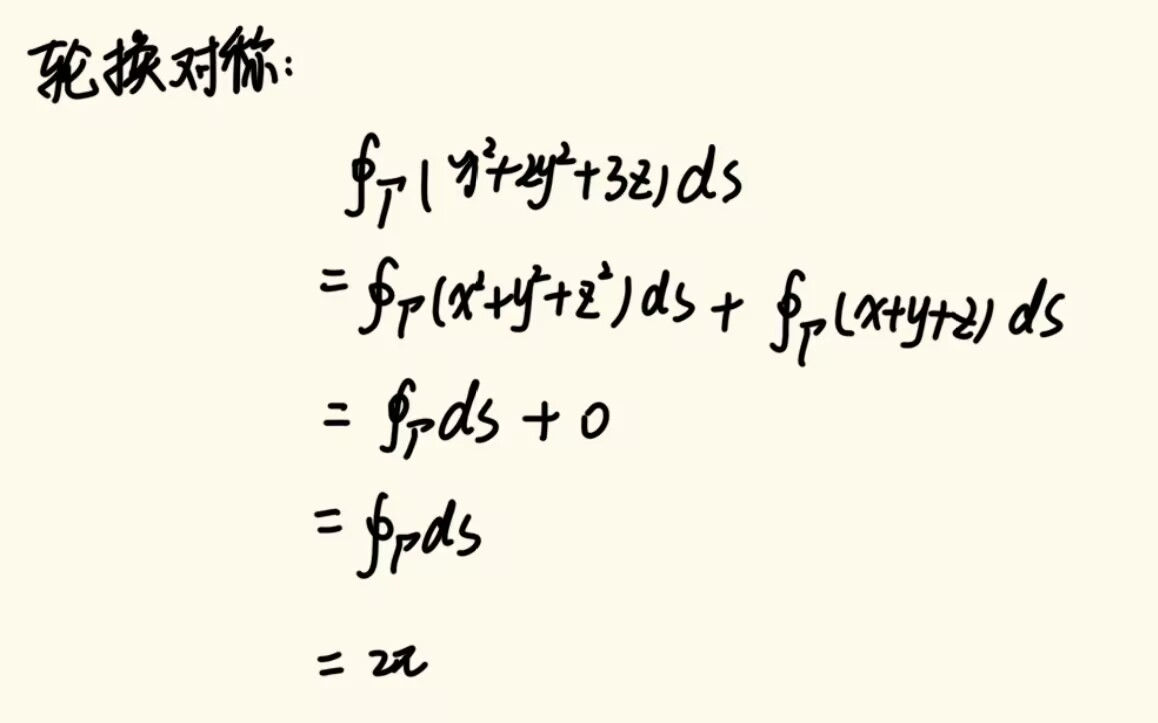 轮换对称:
∮_Γ(x²+2y²+3z)ds
=∮_Γ(x²+y²+z²)ds+∮_Γ(x+y+z)ds
=∮_Γds+0
=∮_Γds
=2π